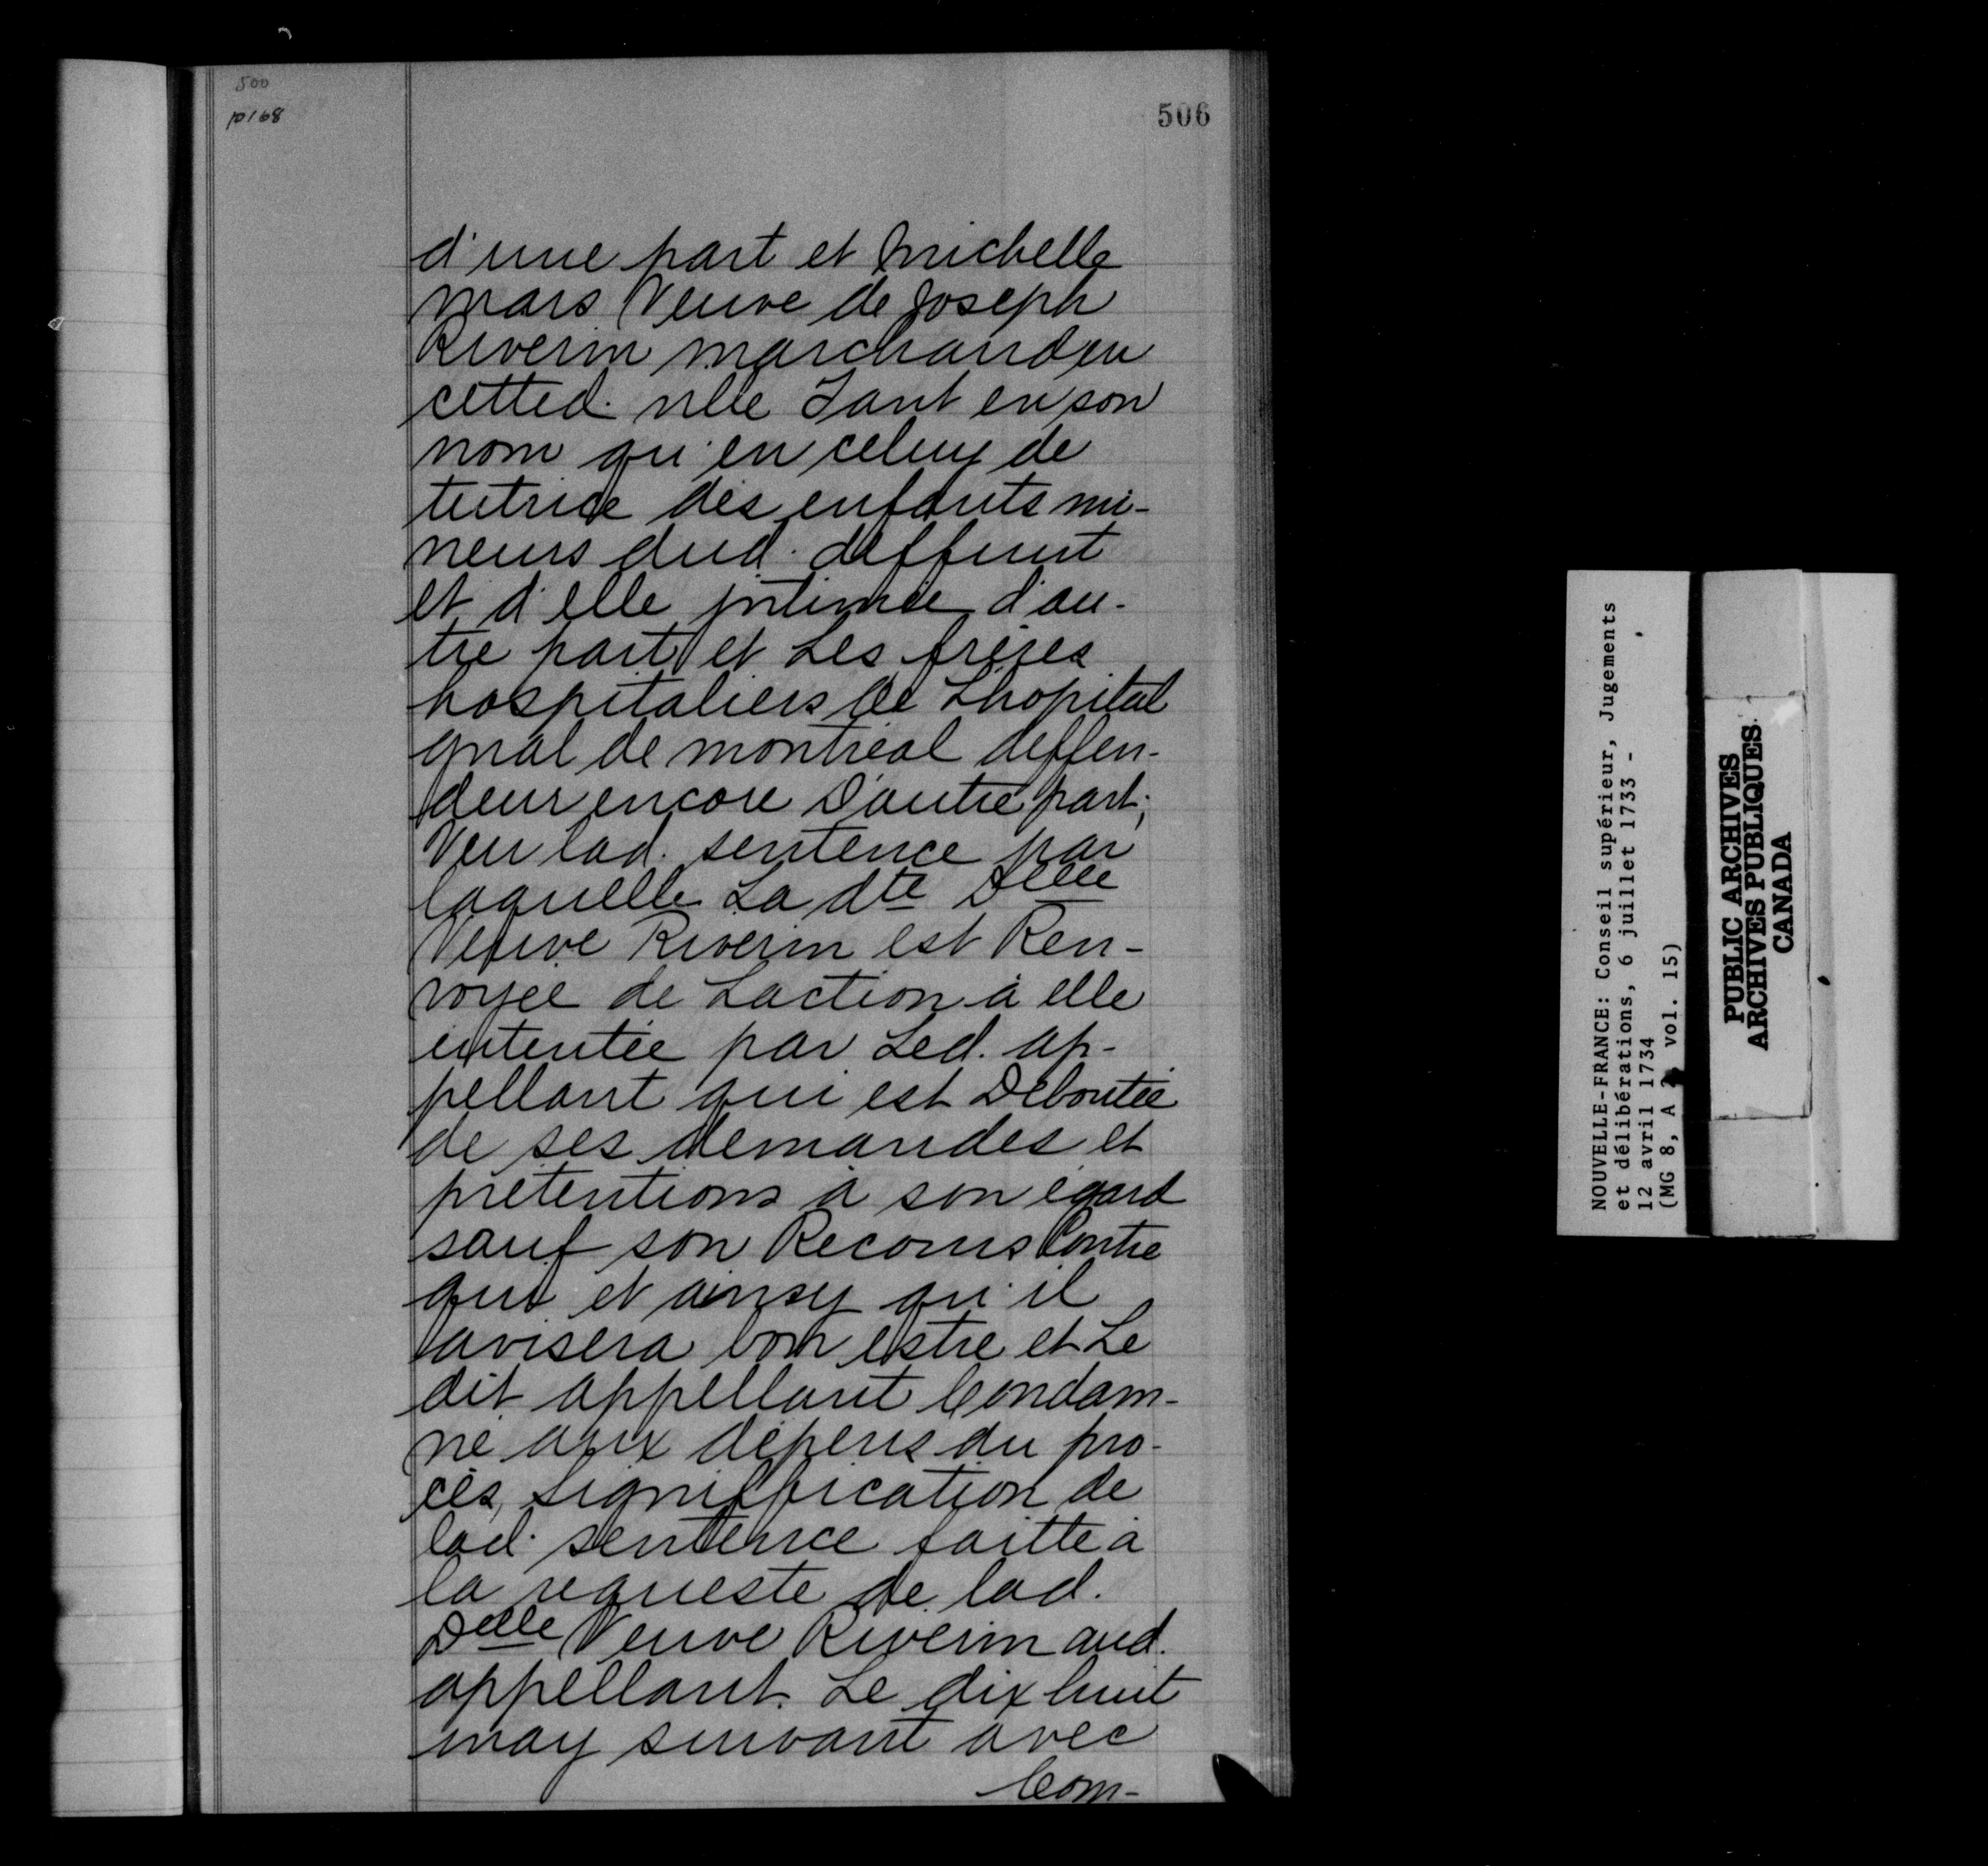 500
p168
506
d'une part et Michelle
mars Veuve de Joseph
Riverin marchand en
cetted. ville Tant en son
nom qu'en celuy de
tutrice des enfants mi-
neurs dud. deffunt
et d'elle jntimée d'au-
tre part et Les frères
hospitaliers de Lhopital
gnal de montreal deffen-
deur encore D'autre part;
Veu lad. sentence par
laquelle La dte Delle
Veuve Riverin est Ren-
voyée de Laction à elle
intentée par Led. ap-
pellant qui est Deboutée
de ses demandes et
prétentions à son égard
sauf son Recours Contre
qui et ainsy qu'il
avisera bon estre et Le
dit appellant Condam-
né aux dépens du pro-
cès, signiffication de
lad. sentence faitte à
la requeste de lad.
Delle Veuve Riverin aud.
appellant. Le dix huit
may suivant avec
Com-
NOUVELLE-FRANCE: Conseil supérieur, Jugements
et délibérations, 6 juillet 1733 -
12 avril 1734
(MG 8, A vol. 15)
PUBLIC ARCHIVES
ARCHIVES PUBLIQUES
CANADA